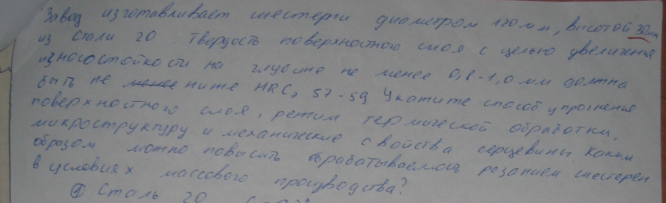 Завод изготавливает шестерни диаметром 120 мм, высотой 30 мм
из стали 20 Твердость поверхностного слоя с целью увеличения
износостойкости на глубине не менее 0,8-1,0 мм должна
быть не ниже HRC, 57-59 Укажите способ упрочнения
поверхностного слоя, режим термической обработки,
микроструктуру и механические свойства сердцевины Каким
образом можно повысить обрабатываемость резанием шестерен
в условиях массового производства?
1 Сталь 20